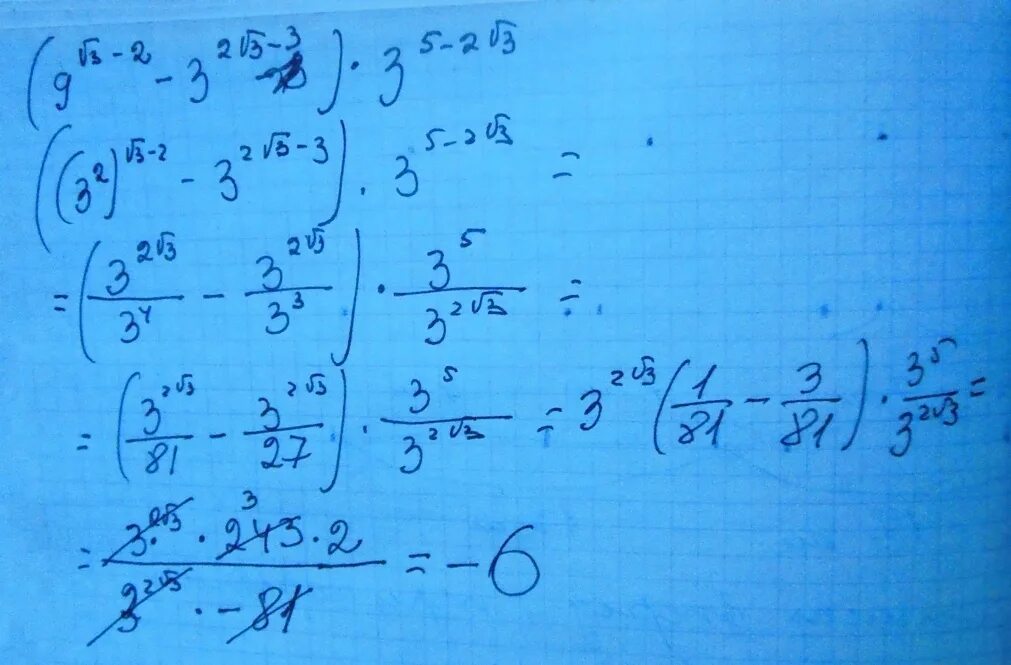 (9^(√3-2) - 3^(2√3-3)) · 3^(5-2√3)
((3^2)^(√3-2) - 3^(2√3-3)) · 3^(5-2√3) =
= (3^(2√3)/3^4 - 3^(2√3)/3^3) · 3^5/3^(2√3) =
= (3^(2√3)/81 - 3^(2√3)/27) · 3^5/3^(2√3) = 3^(2√3) (1/81 - 3/81) · 3^5/3^(2√3) =
= 3^(2√3) · 243 3 · 2 / 3^(2√3) · -81 = -6